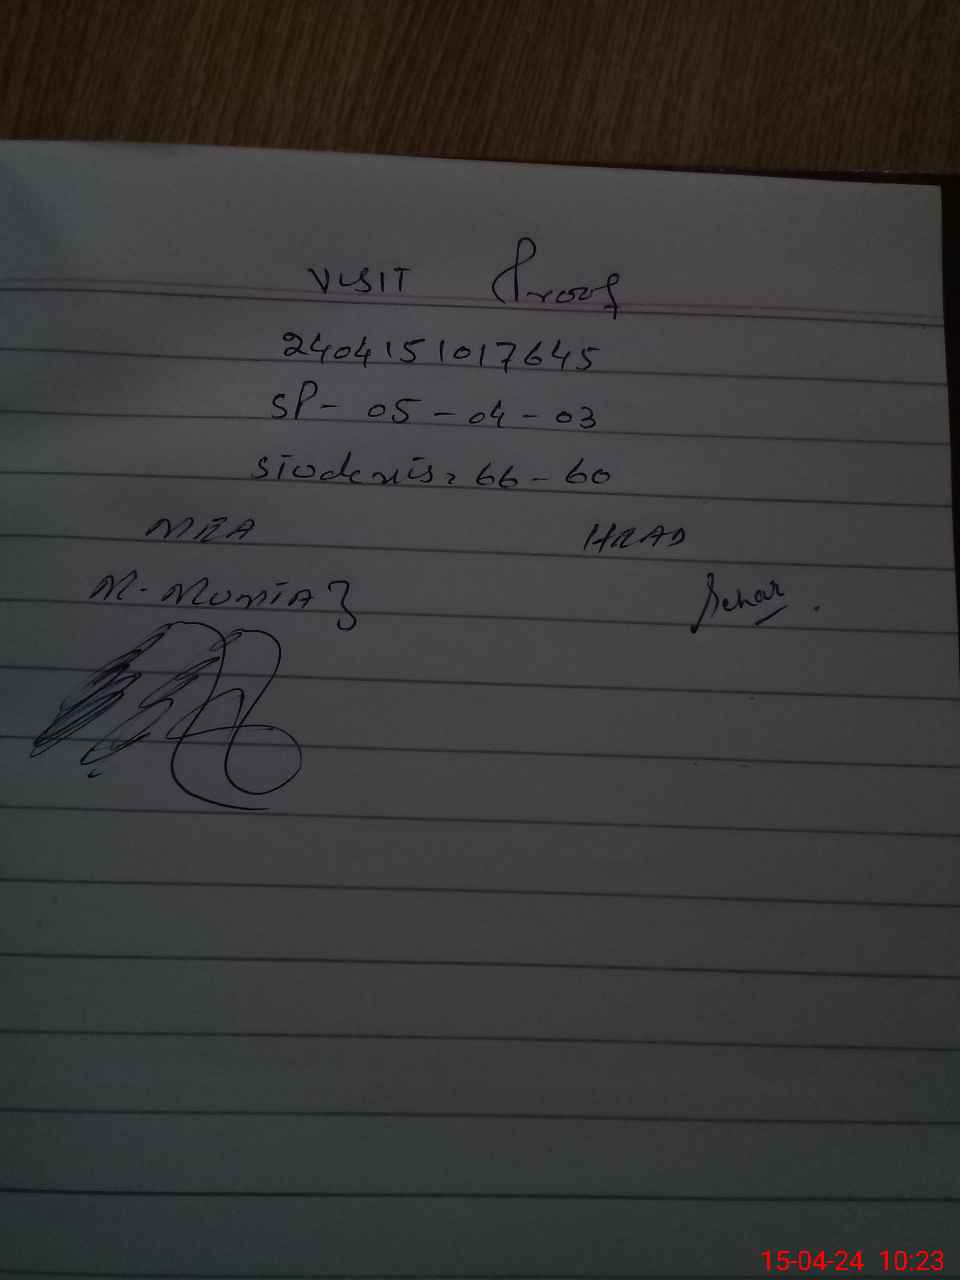 VISIT Proof
2404151017645
SP- 05-04-03
Students: 66-60
MEA HEAD
M. MUMTAZ Sehar
15-04-24 10:23